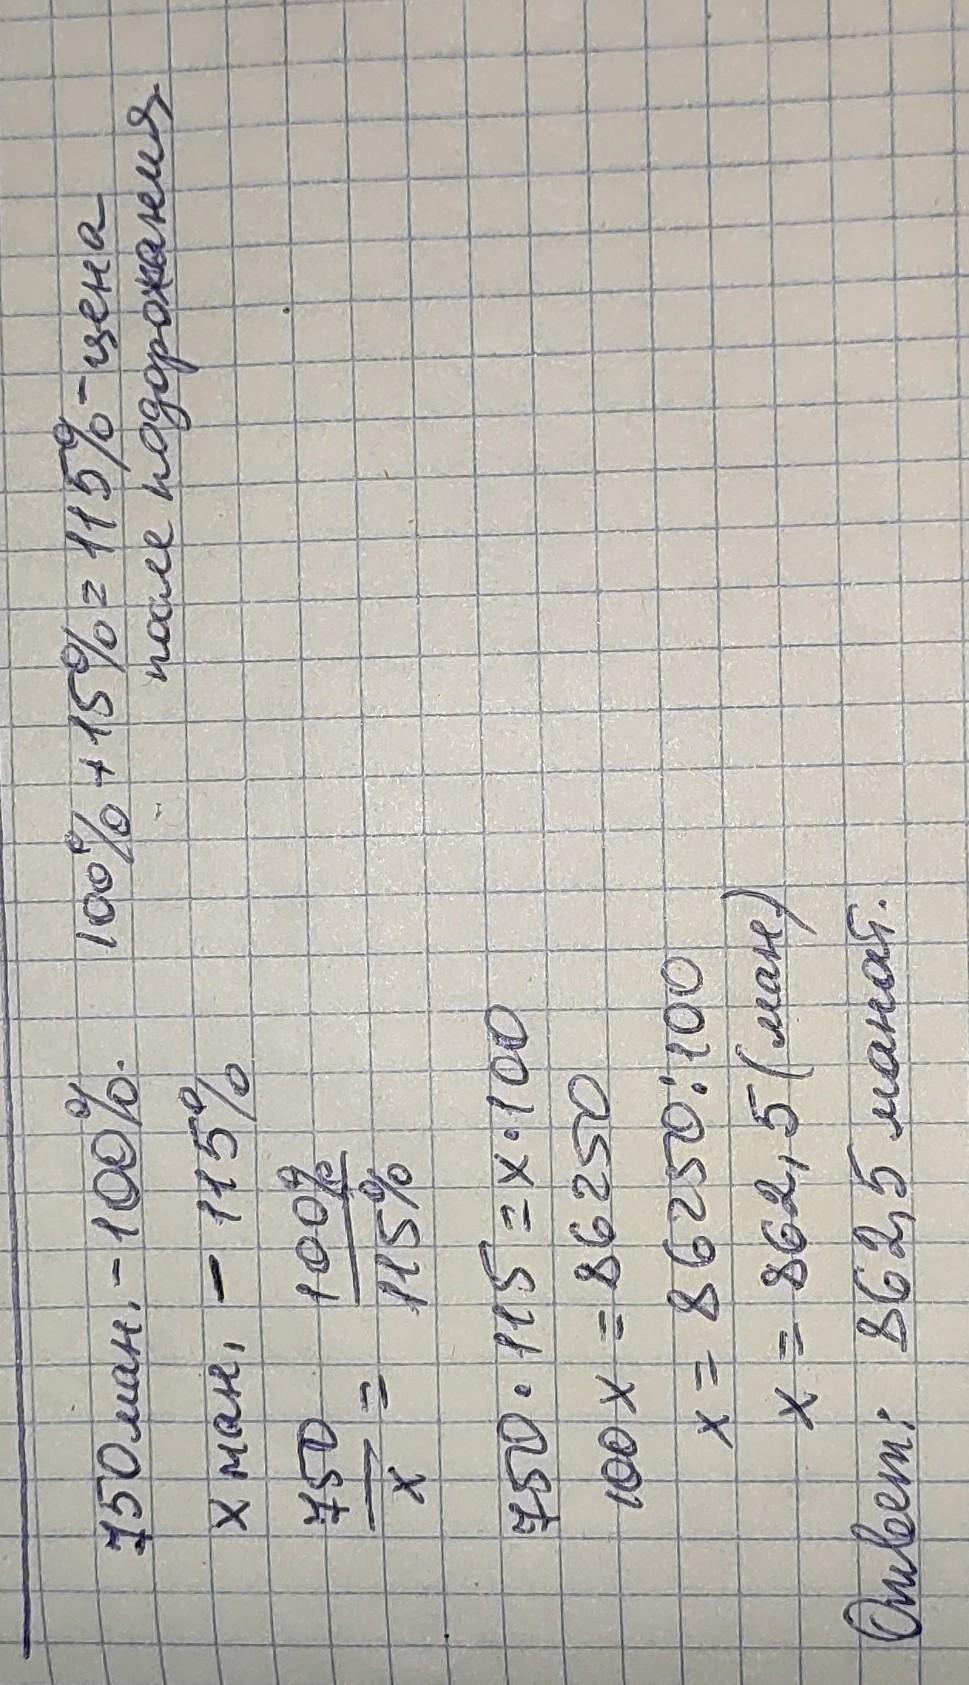 750 ман. - 100%. 100% + 15% = 115% - цена
после подорожания
х ман. - 115%
750/х = 100%/115%
750 · 115 = х · 100
100х = 86250
х = 86250 : 100
х = 862,5 (ман)
Ответ: 862,5 манат.